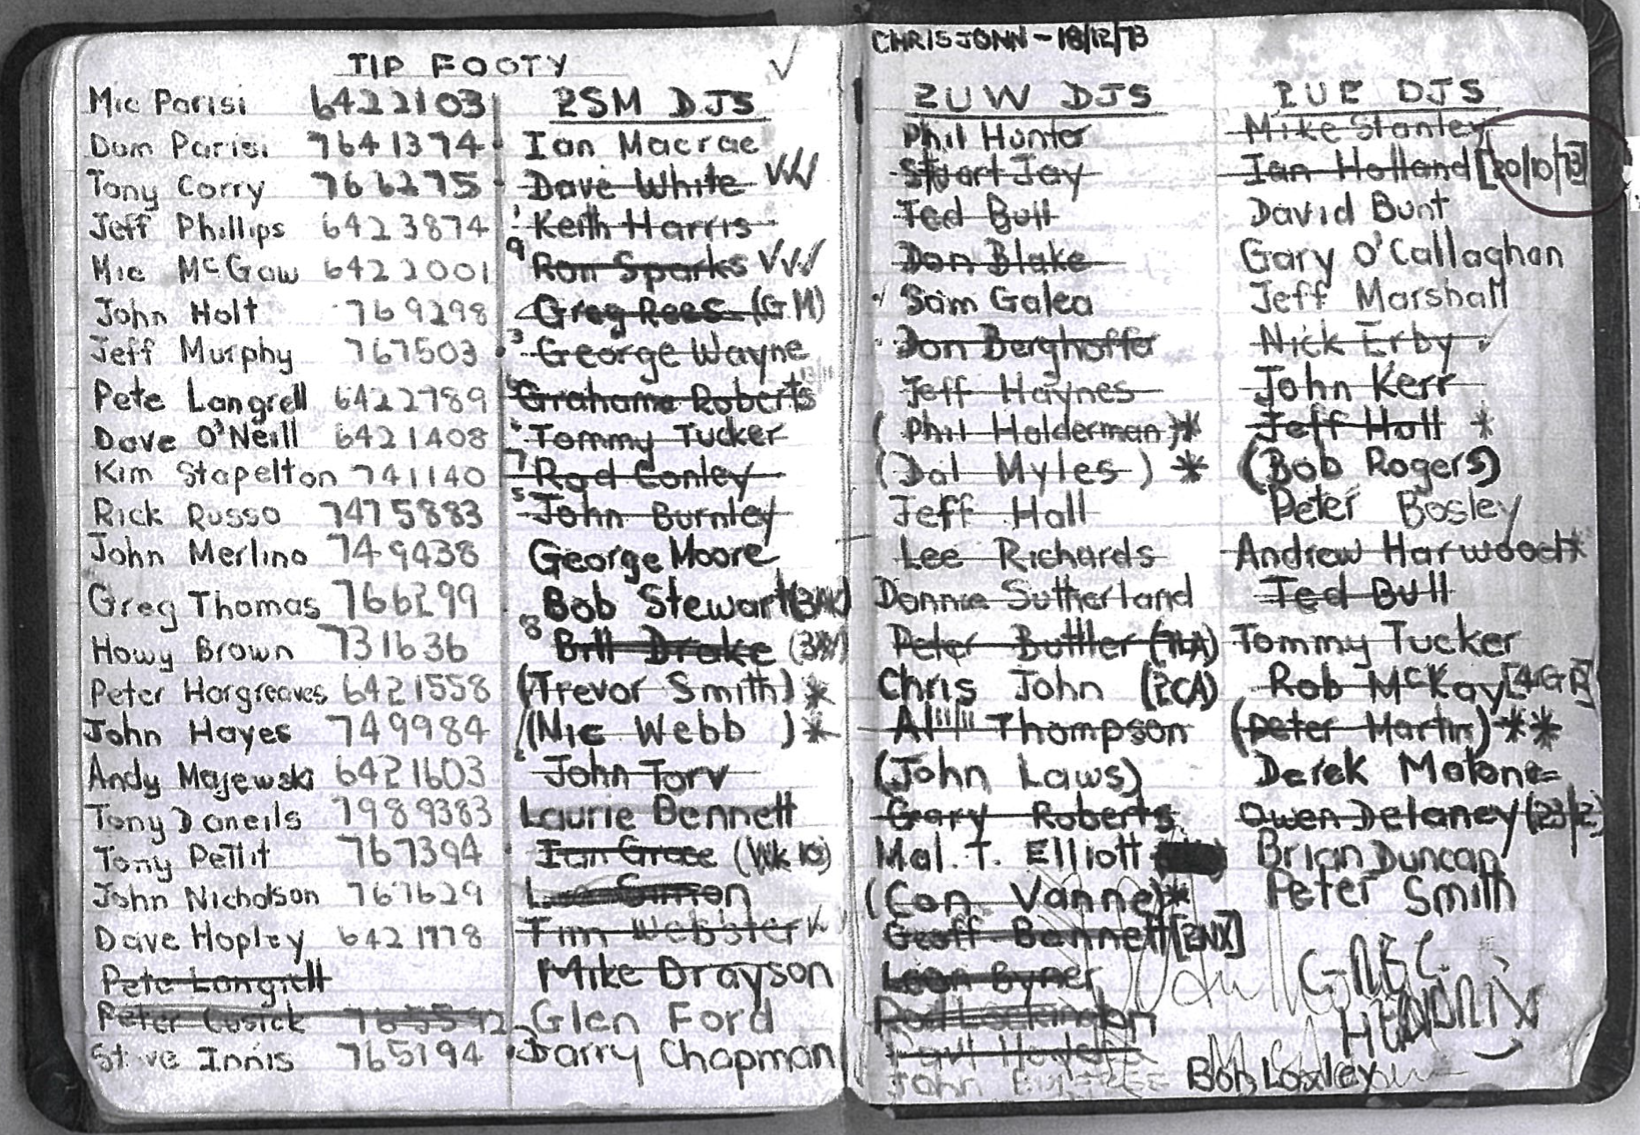 TIP FOOTY
Mic Parisi 6422103
Dom Parisi 7641374
Tony Corry 766275
Jeff Phillips 6423874
Mic McGaw 6422001
John Holt 769298
Jeff Murphy 767503
Pete Langrell 6422789
Dave O'Neill 6421408
Kim Stapelton 741140
Rick Russo 7475883
John Merlino 749438
Greg Thomas 766299
Howy Brown 731636
Peter Hargreaves 6421558
John Hayes 749984
Andy Majewski 6421603
Tony Daneils 7989383
Tony Pettit 767394
John Nicholson 767629
Dave Hopley 6421778
Pete Langrell
Peter Cusick
Steve Innis 765194
2SM DJS
Ian Macrae
Dave White
Keith Harris
9 Ron Sparks
Greg Rees (GM)
3 George Wayne
Grahame Roberts
Tommy Tucker
7 Rod Conley
5 John Burnley
George Moore
Bob Stewart
8 Bill Drake
(Trevor Smith) *
(Nic Webb ) *
John Torv
Laurie Bennett
Ian Grace (Wk 10)
Lee Simon
Tim Webster
Mike Drayson
Glen Ford
Barry Chapman
CHRIS JOHN - 18/12/73
2UW DJS
Phil Hunter
Stuart Jay
Ted Bull
Don Blake
Sam Galea
Don Berghoffer
Jeff Haynes
( Phil Holderman ) *
(Dal Myles ) *
Jeff Hall
Lee Richards
Donnie Sutherland
Peter Buttler (7LA)
Chris John (2CA)
Thompson
(John Laws)
Gary Roberts
Mal. T. Elliott
(Con Vanne) *
Geoff Bennett [2NX]
Leon Byner
Rod Lockington
John
2UE DJS
Mike Stanley
Ian Holland [20/10/73]
David Bunt
Gary O'Callaghan
Jeff Marshall
Nick Erby
John Kerr
Jeff Hall *
(Bob Rogers)
Peter Bosley
Andrew Harwood *
Ted Bull
Tommy Tucker
Rob McKay
(Peter Martin) * *
Derek Malone
Owen Delaney
Brian Duncan
Peter Smith
Bob Loxley